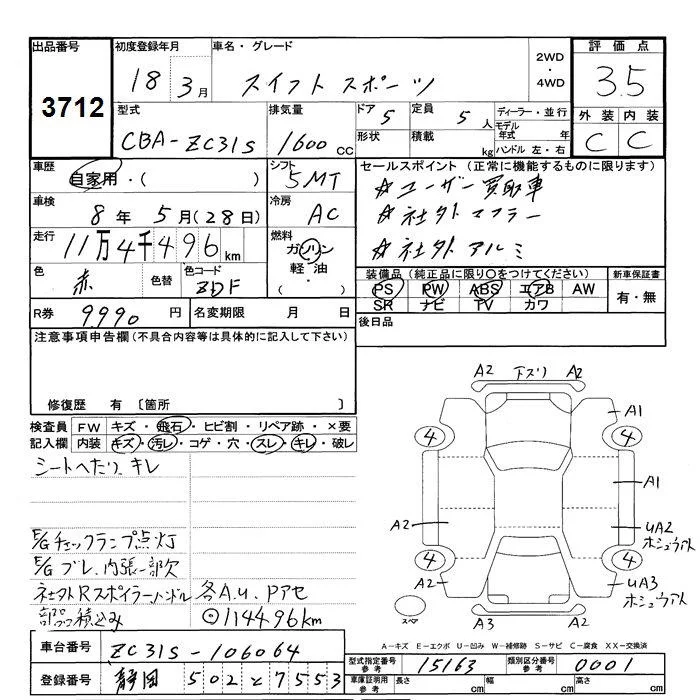 出品番号 初度登録年月 車名・グレード 2WD・4WD 評価点
3712 18 3月 スイフトスポーツ 3.5
型式 排気量 ドア 5 定員 5人 ディーラー・並行 外装 内装
CBA-ZC31S 1600cc 形状 積載 kg モデル年式 年 ハンドル 左・右 C C
車歴 自家用・( ) シフト 5MT セールスポイント (正常に機能するものに限ります)
☆ユーザー買取車
車検 8年5月(28日) 冷房 AC ☆社外マフラー
走行 11万4千496km 燃料 ガソリン 軽油・( ) ☆社外アルミ
色 赤 色替 色コード ZDF 装備品(純正品に限り○をつけてください) 新車保証書
PS PW ABS エアB AW 有・無
SR ナビ TV カワ
R券 9,990円 名変期限 月 日 後日品
注意事項申告欄(不具合内容等は具体的に記入して下さい)
修復歴 有 〔箇所 〕
検査員記入欄 FW キズ・飛石・ヒビ割・リペア跡・×要
内装 キズ・汚レ・コゲ・穴・スレ・キレ・破レ
シートへたり、キレ
E/Gチェックランプ点灯
E/Gブレ、内張一部欠
社外Rスポイラー・ハンドル 各A.U、Pアセ
部品積込み ◎114496km
A2 下スリ A2
A1
4 4
A1
A2 UA2 ホシュウアト
4 4
A2 UA3 ホシュウアト
スペア A3 A2
A-キズ E-エクボ U-凹み W-補修跡 S-サビ C-腐食 XX-交換済
車台番号 ZC31S-106064 型式指定番号 参考 15163 類別区分番号 参考 0001
登録番号 静岡 502 と 7553 車庫証明用 参考 長さ cm 幅 cm 高さ cm